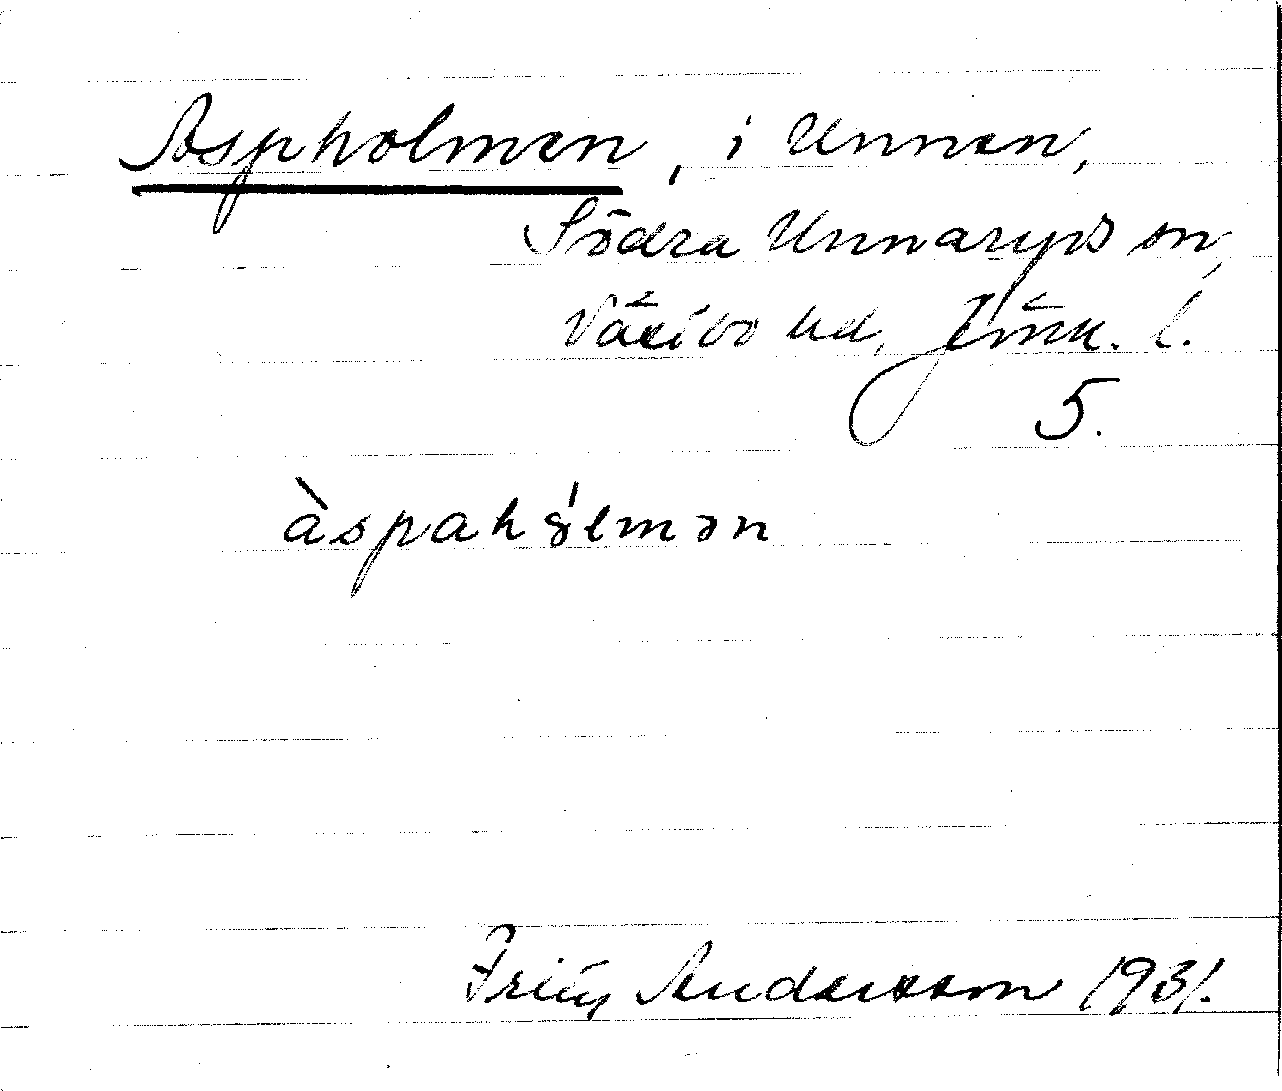 Aspholmen, i Unnen,
Södra Unnaryds sn,
Västbo hd, Jönk. l.
5.
àspahólmən
Fritz Andersson 1931.